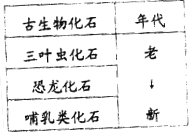 古生物化石 年代
三叶虫化石 老
恐龙化石 ↓
哺乳类化石 新